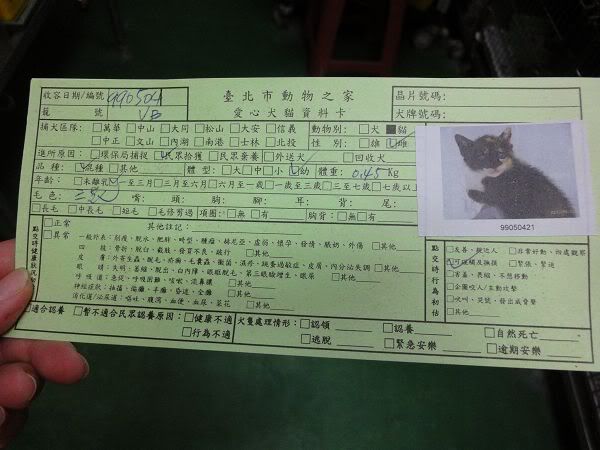 收容日期/編號 990504
臺北市動物之家
晶片號碼:
籠 號 VB
愛心犬貓資料卡
犬牌號碼:
捕犬區隊: □萬華 □中山 □大同 □松山 □大安 □信義 動物別: □犬 ■貓
□中正 □文山 □內湖 □南港 □士林 □北投 性 別: □雄 □雌
進所原因: □環保局捕捉 □民眾拾獲 □民眾棄養 □外送犬 □回收犬
品 種: □混種 □其他 體 型: □大 □中 □小 □幼 體重: 0.45 Kg
年齡: □未離乳 □一至三月 □三月至六月 □六月至一歲 □一歲至三歲 □三至七歲 □七歲以上
毛 色: 三色 嘴: 頭: 胸: 腳: 耳: 背: 尾:
□長毛 □中長毛 □短毛 □毛修剪過 項圈: □無 □有 胸背: □無 □有
99050421
點交時健康狀況初估
□正常 其他註記:
□異常 一般外表: 削瘦、脫水、肥胖、畸型、腫瘤、赫尼亞、虛弱、懷孕、發情、脹奶、外傷 □其他
四 肢: 骨折、脫臼、截肢、發育不良、跛行 □其他
皮 膚: 外寄生蟲、脫毛、疥癬、毛囊蟲、黴菌、濕疹、跳蚤過敏症、皮膚、內分泌失調 □其他
眼 睛: 失明、萎縮、脫出、白內障、眼瞼脫毛、第三眼瞼增生、眼屎 □其他
呼 吸 道: 急促、呼吸困難、咳嗽、流鼻膿 □其他
神經症狀: 抽搐、偏癱、半癱、昏迷、全癱 □其他
消化道/泌尿道: 嘔吐、腹瀉、血便、血尿、菜花 □其他
點交時行為初估
□友善、親近人 □非常好動、四處觀察
□可理睬及撫摸 □緊張、緊迫
□害羞、畏縮、不想移動
□企圖咬人/主動攻擊
□吠叫、哭號、發出威脅聲
□其他
□適合認養 □暫不適合民眾認養原因: □健康不適
□行為不適
犬隻處理情形: □認領 □認養 □自然死亡
□逃脫 □緊急安樂 □逾期安樂